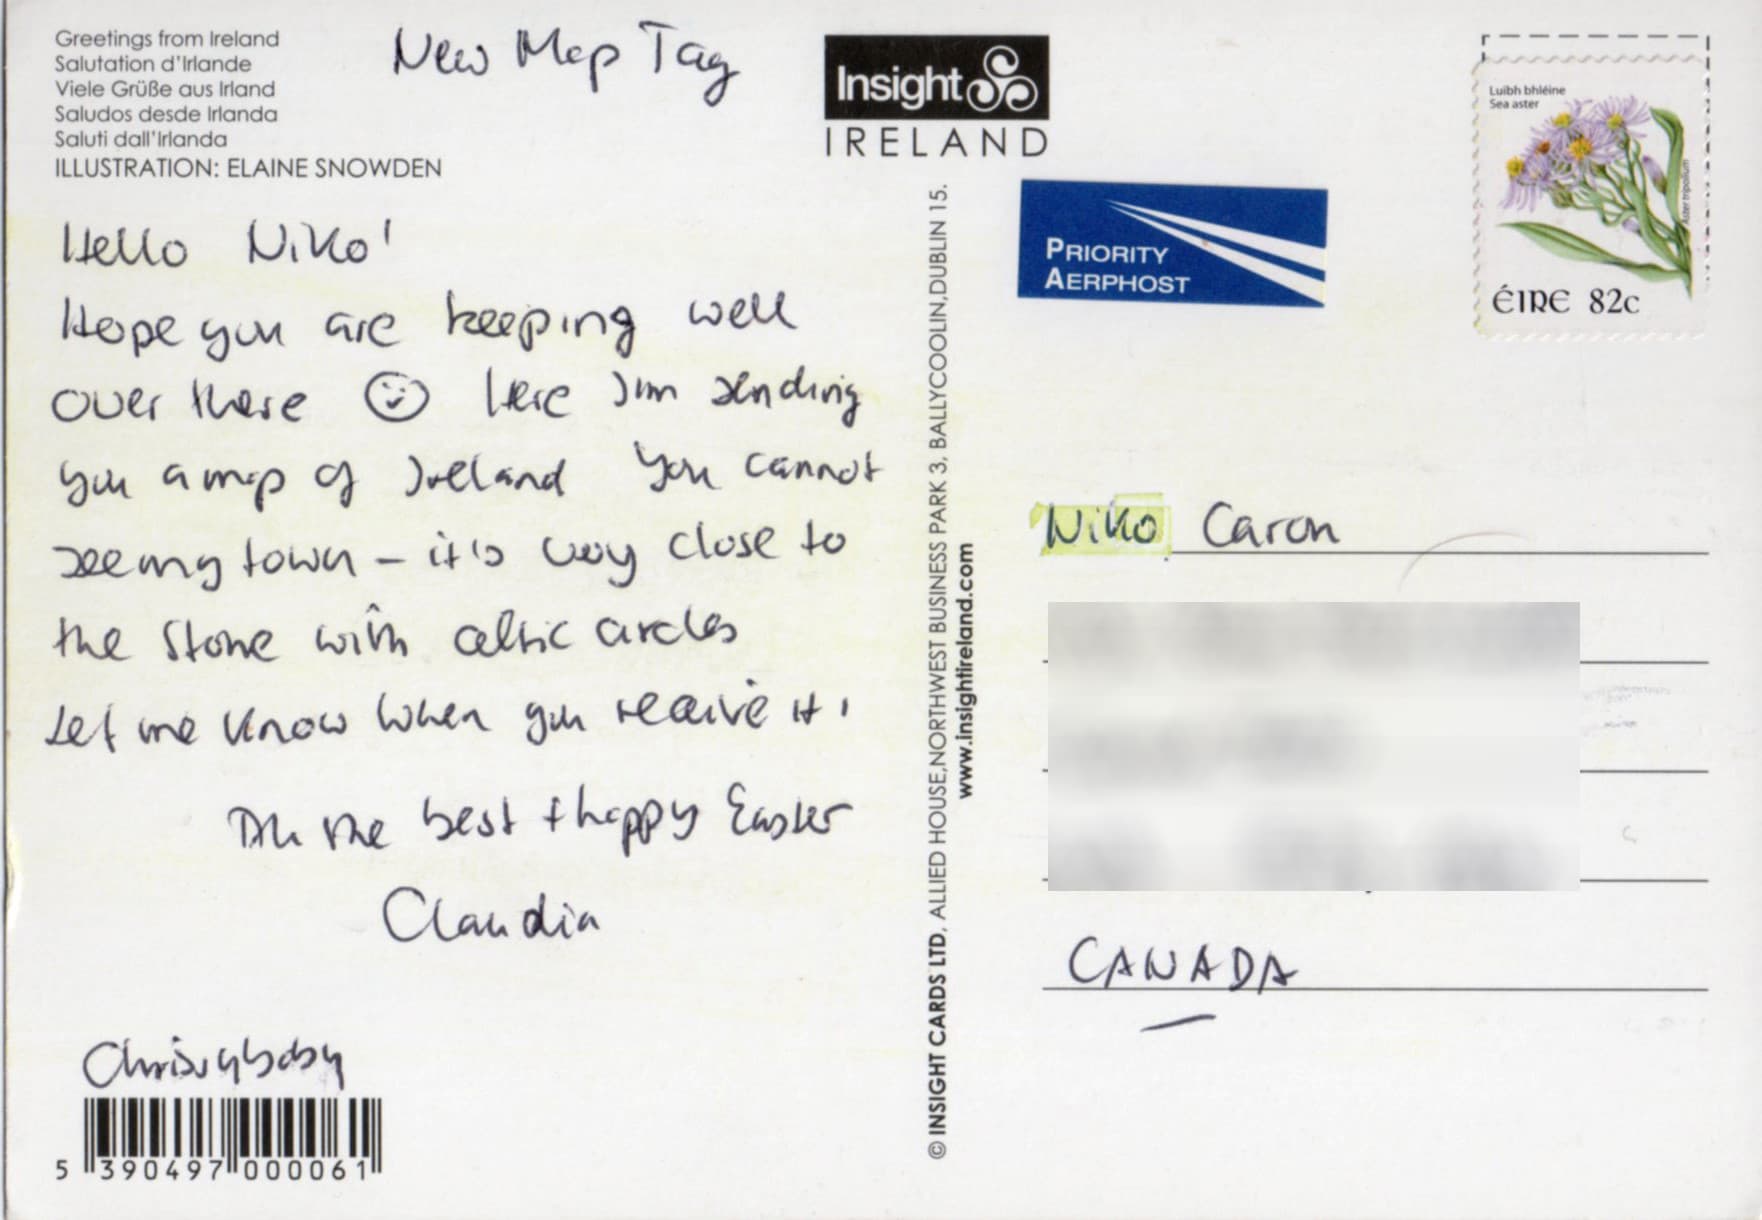 Greetings from Ireland
Salutation d'Irlande
Viele Grüße aus Irland
Saludos desde Irlanda
Saluti dall'Irlanda
ILLUSTRATION: ELAINE SNOWDEN
New Map Tag
Hello Niko!
Hope you are keeping well
over there Here I'm sending
you a map of Ireland You cannot
see my town - it's very close to
the stone with celtic circles
Let me know when you receive it!
All the best + happy Easter
Claudia
Chrissybaby
5 390497 000061
Insight
IRELAND
© INSIGHT CARDS LTD, ALLIED HOUSE,NORTHWEST BUSINESS PARK 3, BALLYCOOLIN,DUBLIN 15.
www.insightireland.com
PRIORITY
AERPHOST
Luibh bhléine
Sea aster
Aster tripolium
ÉIRE 82c
Niko Caron
CANADA